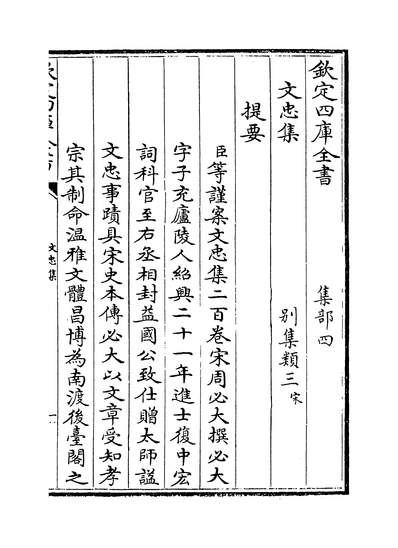 欽定四庫全書 集部四
文忠集 別集類三宋
提要
臣等謹案文忠集二百卷宋周必大撰必大
字子充廬陵人紹興二十一年進士復中宏
詞科官至右丞相封益國公致仕贈太師謚
文忠事蹟具宋史本傳必大以文章受知孝
宗其制命温雅文體昌博為南渡後臺閣之
文忠集